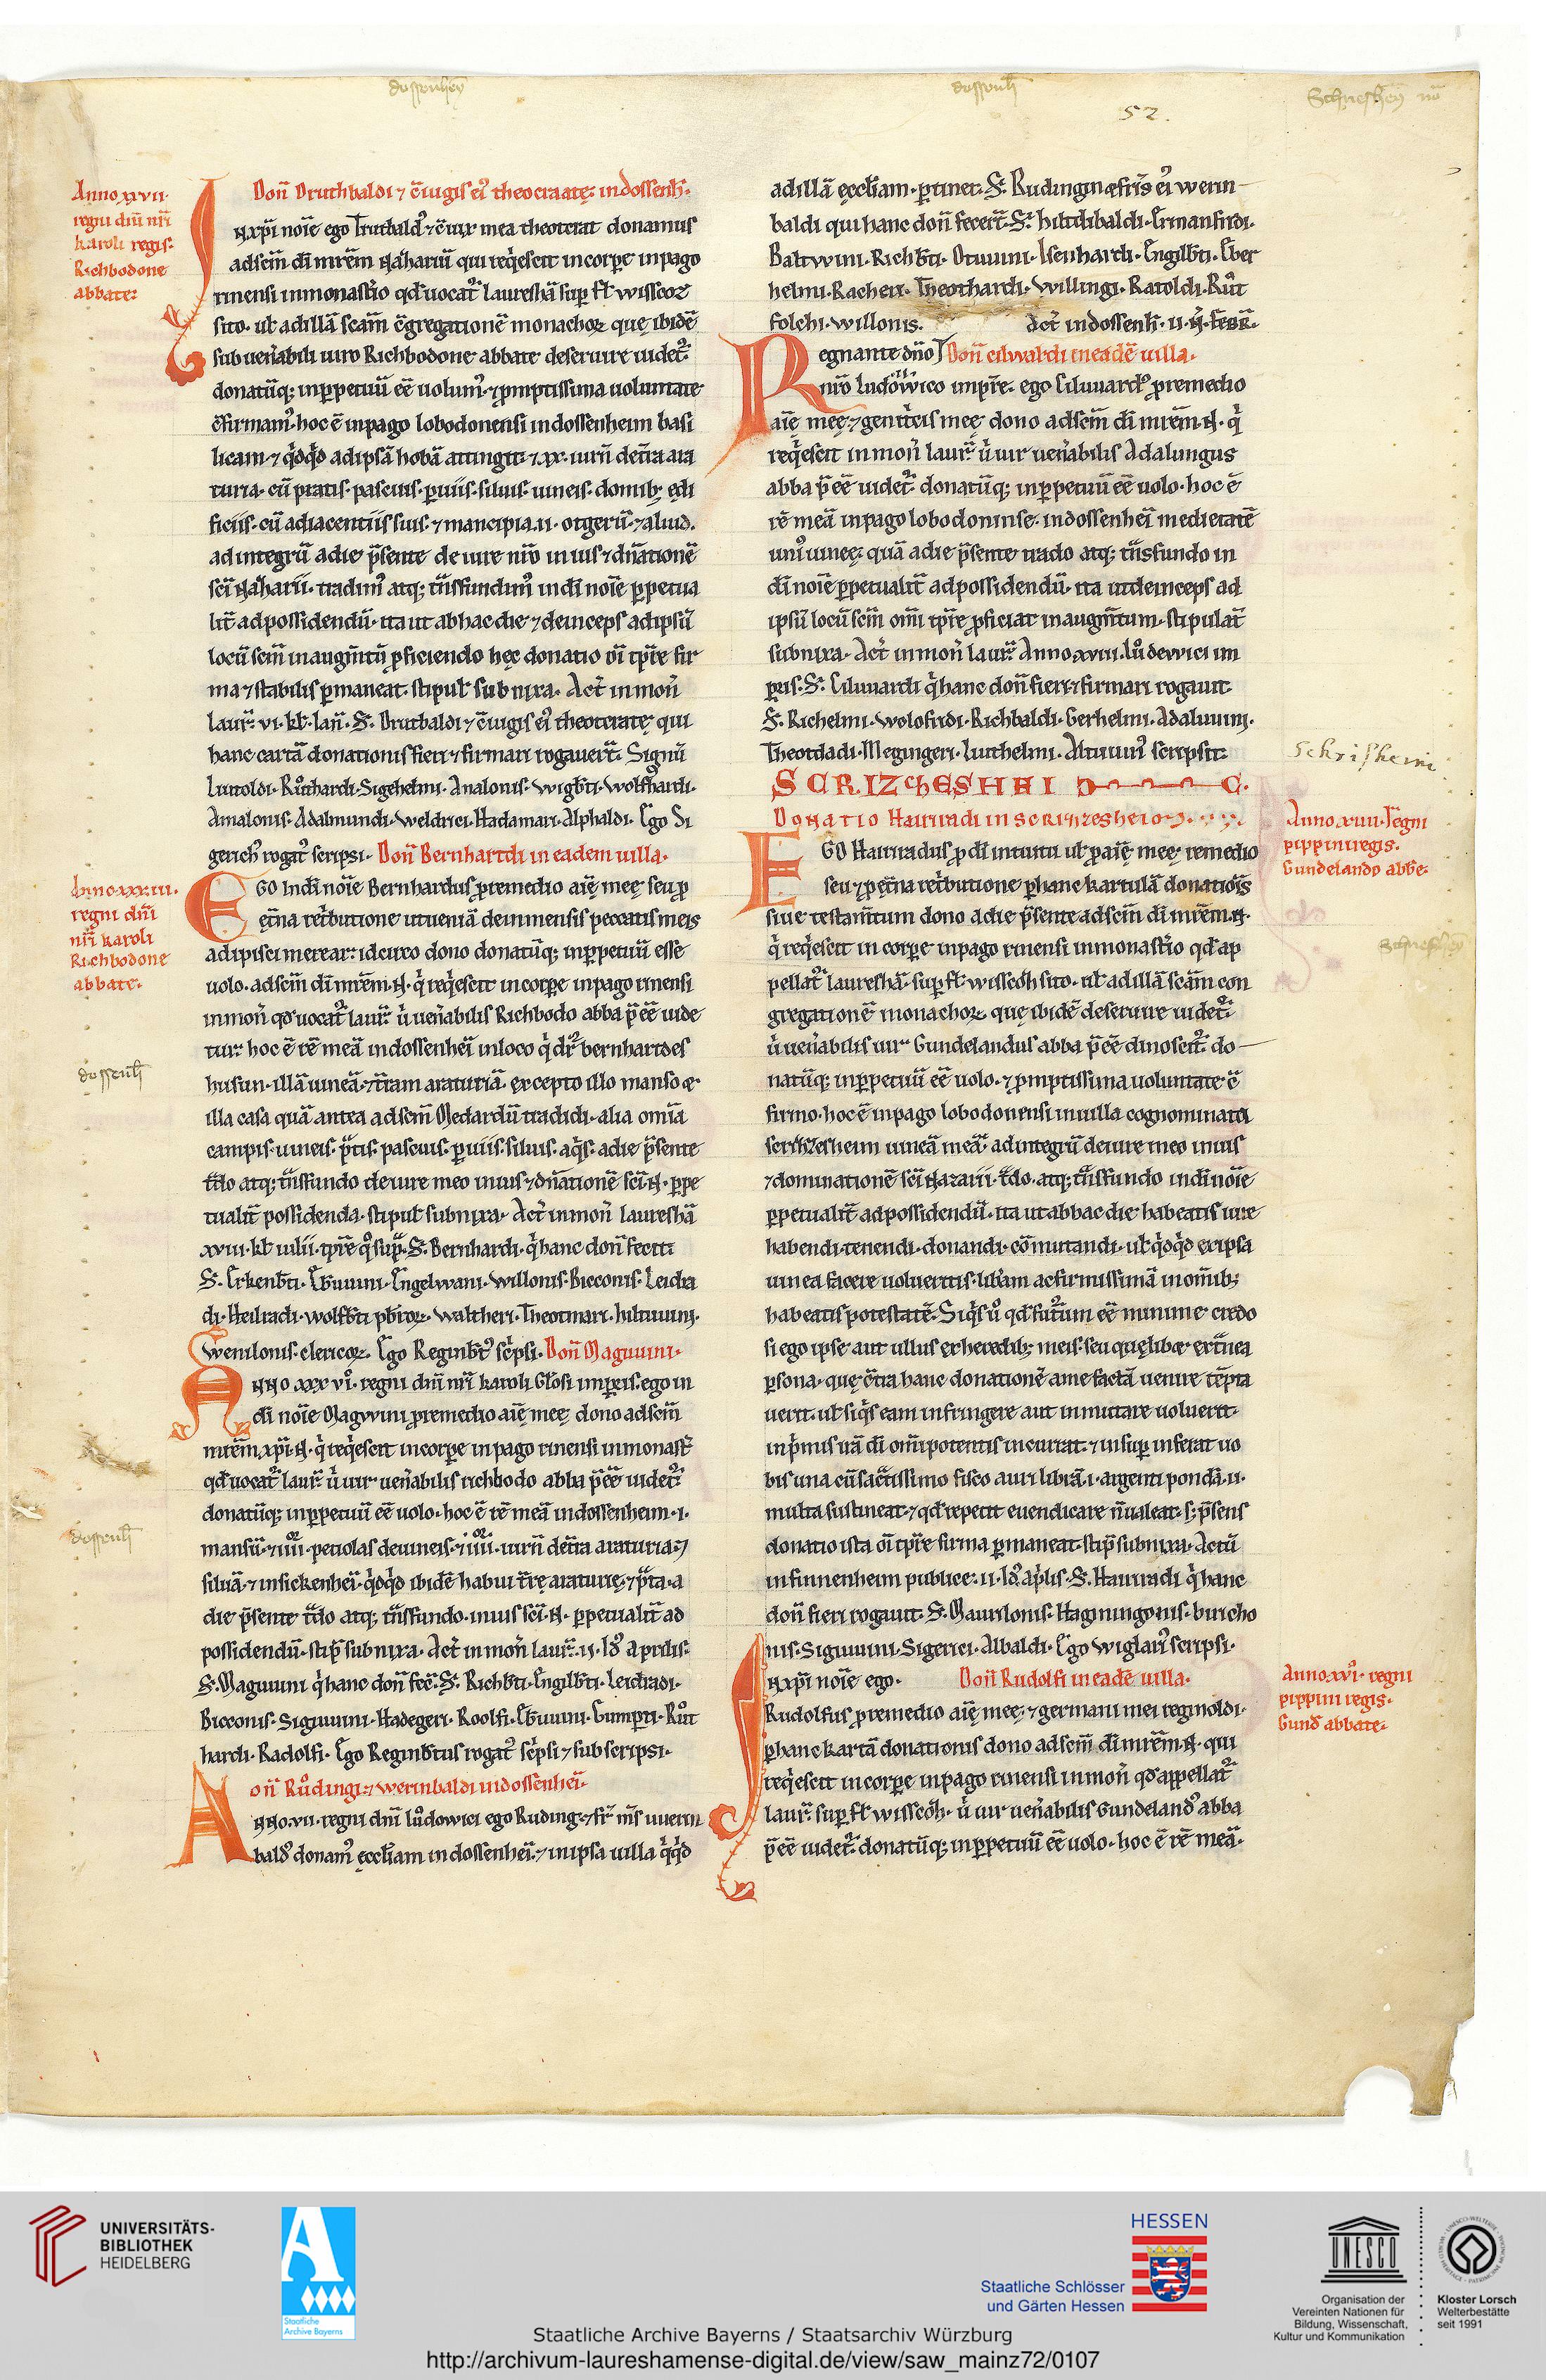 dossenheȳ
dossenh̄
Schriesheȳ
52.
Anno xvii.
regni dn̄i nr̄i
karoli regis.
Richbodone
abbate.
Don̄ Druthbaldi ⁊ c̄iugis eiꝰ theocraatę. in dossenh̄.
N xp̄i noīe ego Trutbaldꝰ ⁊ c̄iux mea theotrat donamus
ad sc̄m dī mr̄em Nazhariū qui req̇escit in corp̱e in pago
rinensi in monast̄io qd̄ uocat᷑ laureshā sup̱ fl̄ wisscoꝝ
sito. ul̄ ad illā sc̄am c̄gregationē monachoꝝ quę ibidē
sub uen̄abili uiro Richbodone abbate deseruire uidet᷑.
donatūq; inp̱petuū eē uolumꝰ. ⁊ ꝓmptissima uoluntate
c̄firmamꝰ. hoc ē in pago lobodonensi in dossenheim basi
licam ⁊ q̇dq̇d ad ipsā hobā attingit. ⁊ xx. iurn̄ de tr̄a ara
turia. cū pratis. pascuis. p̱uiis. siluis. uineis. domib; ędi
ficiis. cū adiacentiis suis. ⁊ mancipia. ii. otgerū. ⁊ aliud.
ad integrū a die p̄sente de iure nr̄o in ius ⁊ dn̄ationē
sc̄i Nazharii. tradimꝰ atq; tn̄sfundimꝰ in dī noīe p̱petua
lit̄ ad possidendū. ita ut ab hac die ⁊ deinceps ad ipsū
locū sc̄m in augm̄tū ꝓficiendo hęc donatio oī tp̄re fir
ma ⁊ stabilis p̱maneat. stipul̄ subnixa. Act̄ in mon̄
laur̄. vi. kl̄. Ian̄. S̄. Drutbaldi ⁊ c̄iugis eiꝰ theotratę qui
hanc cartā donationis fieri ⁊ firmari rogauer̄. Signū
Luttoldi. Ruͦthardi. Sigehelmi. Analonis. Wigb̄ti. Wolfhardi.
Amalonis. Adalmundi. Weldrici. Hadamari. Alphaldi. Ego Si
gerichꝰ rogatꝰ scripsi. Don̄ Bernhardi in eadem uilla.
Anno xxx iii.
regni dn̄i
nr̄i karoli
Richbodone
abbate.
EGO In dī noīe Bernhardus ꝓ remedio aīę meę seu ꝓ
et̄na ret̄butione ut ueniā de inmensis peccatis meis
adipisci merear. idcirco dono donatūq; inp̱petuū esse
uolo. ad sc̄m dī mr̄em. N. q̇ req̇escit in corp̱e in pago rinensi
in mon̄ qd̄ uocat᷑ laur̄. u̇ uen̄abilis Richbodo abba p̄eē uide
tur. hoc ē rē meā in dossenheī in loco q̇ dr̄ bernhardes
husun. illā uineā. ⁊ tr̄am araturiā. excepto illo manso ⁊
illa casa quā antea ad sc̄m Medardū tradidi. alia omīa
campis. uineis. p̄tis. pascuis. p̱uiis. siluis. aq̇s. a die p̄sente
tr̄do atq; tn̄sfundo de iure meo in ius ⁊ dn̄ationē sc̄i. N. p̱pe
tualit̄ possidenda. stipul̄ subnixa. Act̄ in mon̄ laureshā
xviii. kl̄. iulii. tp̄re q̊ sup̄. S̄. Bernhardi. q̇ hanc don̄ fecit.
S̄. Erkenb̄ti. Eb̄uuini. Engelwani. Willonis. Bicconis. Leidra
di. Heilradi. Wolfb̄ti p̄b̄roꝝ. Waltheri. Theotmari. hiltuuini.
Wenilonis. clericoꝝ. Ego Reginb̄tꝰ sc̄psi. Don̄ Maguuini.
dossenh̄
ANNO xxx viͦ. regni dn̄i nr̄i karoli Gl̄osi imperīs. ego in
dī noīe Magwini ꝓ remedio aīę meę dono ad sc̄m
mr̄em xp̄i. N. q̇ req̇escit in corp̱e in pago rinensi in monast̄
qd̄ uocat᷑ laur̄. u̇ uir uen̄abilis richbodo abba p̄eē uidet᷑.
donatūq; inp̱petuū eē uolo. hoc ē rē meā in dossenheim. i.
mansū. ⁊ iiii. petiolas de uineis. ⁊ iiii. iurn̄ de tr̄a araturia ⁊
siluā. ⁊ in sickenheī. q̇dq̇d ibidē habui tr̄ę araturię. ⁊ p̄ta. a
die p̄sente tr̄do atq; tn̄sfundo. in ius sc̄i. N. p̱petualit̄ ad
possidendū. stip̄ subnixa. Act̄ in mon̄ laur̄. ii. Idꝰ aprilis.
S̄. Maguuini q̇ hanc don̄ fec̄. S̄. Richb̄ti. Engilb̄ti. Leidradi.
Bicconis. Siguuini. Hadegeri. Roolfi. Eb̄uuini. Gump̱ti. Ruͦt
hardi. Radolfi. Ego Reginb̄tus rogatꝰ sc̄psi ⁊ subscripsi.
dossenh̄
on̄ Ruͦdingi. ⁊ Werinbaldi in dossenheī.
ANNO. vii. regni dn̄i luͦdowici ego Ruding. ⁊ fr̄ m̄s uuerin
baldꝰ donamꝰ ęccl̄iam in dossenheī. ⁊ in ipsa uilla q̇q̇d
ad illā ęccl̄iam. p̱tinet. S̄. Rudingi ⁊ fr̄is eiꝰ werin
baldi qui hanc don̄ fecer̄. S̄. hiltdibaldi. Ermanfridi.
Baltwini. Richb̄ti. Otuuini. Isenhardi. Engilb̄ti. Eber
helmi. Racheri. Theothardi. Willingi. Ratoldi. Ruͦt
folchi. Willonis. Act̄ in dossenh̄. ii. N̄. Febr̄.
Regnante dn̄o Don̄ eilwardi in eadē uilla.
nr̄o ludowico imp̄re. ego Eiluuardꝰ ꝓ remedio
aīę meę. ⁊ genit̄cis meę dono ad sc̄m dī mr̄em. N. q̇
req̇escit in mon̄ laur̄. u̇ uir uen̄abilis Adalungus
abba p̄eē uidet᷑. donatūq; inp̱petuū eē uolo. hoc ē
rē meā in pago lobodoninse. in dossenheī medietatē
uniꝰ uineę. quā a die p̄sente trado atq; tn̄sfundo in
dī noīe p̱petualit̄ ad possidendū. ita ut deinceps ad
ipsū locū sc̄m omī tp̄re ꝓficiat in augm̄tum. stipulat̄
subnixa. Act̄ in mon̄ laur̄. Anno xviii. luͦdewici im
p̱ris. S̄. Eiluuardi q̇ hanc don̄ fieri ⁊ firmari rogauit.
S̄. Richelmi. Wolofridi. Richbaldi. Gerhelmi. Adaluuini.
Theotdadi. Megingeri. Luthelmi. Altuuinꝰ scripsit.
Schrisheim
SCRIZCHESHEI
DONATIO Hariradi in scrizheshei
Anno xiiii. Regni
pippini regis.
Gundelando abb̄e.
Schriesheȳ
EGO Hariradus ꝓ dī intuitu ul̄ ꝓ aīę meę remedio
seu ⁊ ꝓ et̄na ret̄butione p̱ hanc kartulā donatiōis
siue testam̄tum dono a die p̄sente ad sc̄m dī mr̄em. N.
q̇ req̇escit in corp̱e in pago rinensi in monast̄io qd̄ ap
pellat᷑ laureshā. sup̱ fl̄ wisscoh̄ sito. ul̄ ad illā sc̄am con
gregationē monachoꝝ quę ibidē deseruire uidet᷑.
u̇ uen̄abilis uir Gundelandus abba p̄eē dinoscit᷑. do
natūq; inp̱petuū eē uolo. ⁊ ꝓmptissima uoluntate c̄
firmo. hoc ē in pago lobodonensi in uilla cognominata
scrizhesheim uineā meā. ad integrū de iure meo in ius
⁊ dominationē sc̄i Nazarii. tr̄do. atq; tn̄sfundo in dī noīe
p̱petualit̄ ad possidendū. ita ut ab hac die habeatis iure
habendi. tenendi. donandi. cōmutandi. ul̄ q̇dq̇d ex ipsa
uinea facere uolueritis. lib̄am ac firmissimā in om̄ib;
habeatis potestatē. Si q̇s u̇ qd̄ fut̄um eē minime credo
si ego ipse aut ullus ex heredib; meis. seu quęlibet ext̄nea
p̱sona. quę c̄tra hanc donationē a me factā uenire tēpta
uerit. ul̄ si q̇s eam infringere aut inmutare uoluerit.
in p̄mis irā dī om̄ipotentis incurrat. ⁊ insup̱ inferat uo
bis una cū sac̄tissimo fisco auri librā. i. argenti pondā. ii.
multa sustineat. ⁊ qd̄ repetit euendicare n̄ ualeat. s; p̄sens
donatio ista oī tp̄re firma p̱maneat. stip̄ subnixa. Actū
in finnenheim publice. ii. Idꝰ ap̄lis. S̄. Hariradi q̇ hanc
don̄ fieri rogauit. S̄. Maurilonis. Hagningonis. buricho
nis. Siguuini. Sigerici. Albaldi. Ego Wiglarꝰ scripsi.
Anno xviͦ. regni
pippini regis.
Gund̄ abbate.
IN xp̄i noīe ego. Don̄ Rudolfi in eadē uilla.
Rudolfus ꝓ remedio aīę meę. ⁊ germani mei reginoldi.
p̱ hanc kartā donationis dono ad sc̄m dī mr̄em. N. qui
req̇escit in corp̱e in pago rinensi in mon̄ qd̄ appellat᷑
laur̄. sup̱ fl̄ wisscoh̄. u̇ uir uen̄abilis Gundelandꝰ abba
p̄eē uidet᷑. donatūq; inp̱petuū eē uolo. hoc ē rē meā.
UNIVERSITÄTS-
BIBLIOTHEK
HEIDELBERG
Staatliche
Archive Bayerns
HESSEN
Staatliche Schlösser
und Gärten Hessen
UNESCO
Organisation der
Vereinten Nationen für
Bildung, Wissenschaft,
Kultur und Kommunikation
Kloster Lorsch
Welterbestätte
seit 1991
Staatliche Archive Bayerns / Staatsarchiv Würzburg
http://archivum-laureshamense-digital.de/view/saw_mainz72/0107